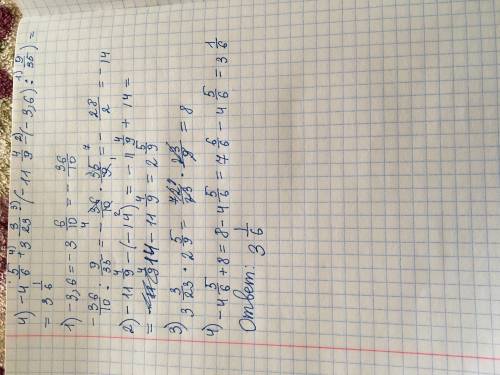 4) -4 5/6 + 3 3/23 · (-11 4/9 - (-3,6) : 9/35) =
= 3 1/6
1) -3,6 = -3 6/10 = -36/10
-36/10 : 9/35 = -36/10 · 35/9 = -28/2 = -14
2) -11 4/9 - (-14) = -11 4/9 + 14 =
= 14 - 11 4/9 = 2 5/9
3) 3 3/23 · 2 5/9 = 72/23 · 23/9 = 8
4) -4 5/6 + 8 = 8 - 4 5/6 = 7 6/6 - 4 5/6 = 3 1/6
Ответ: 3 1/6